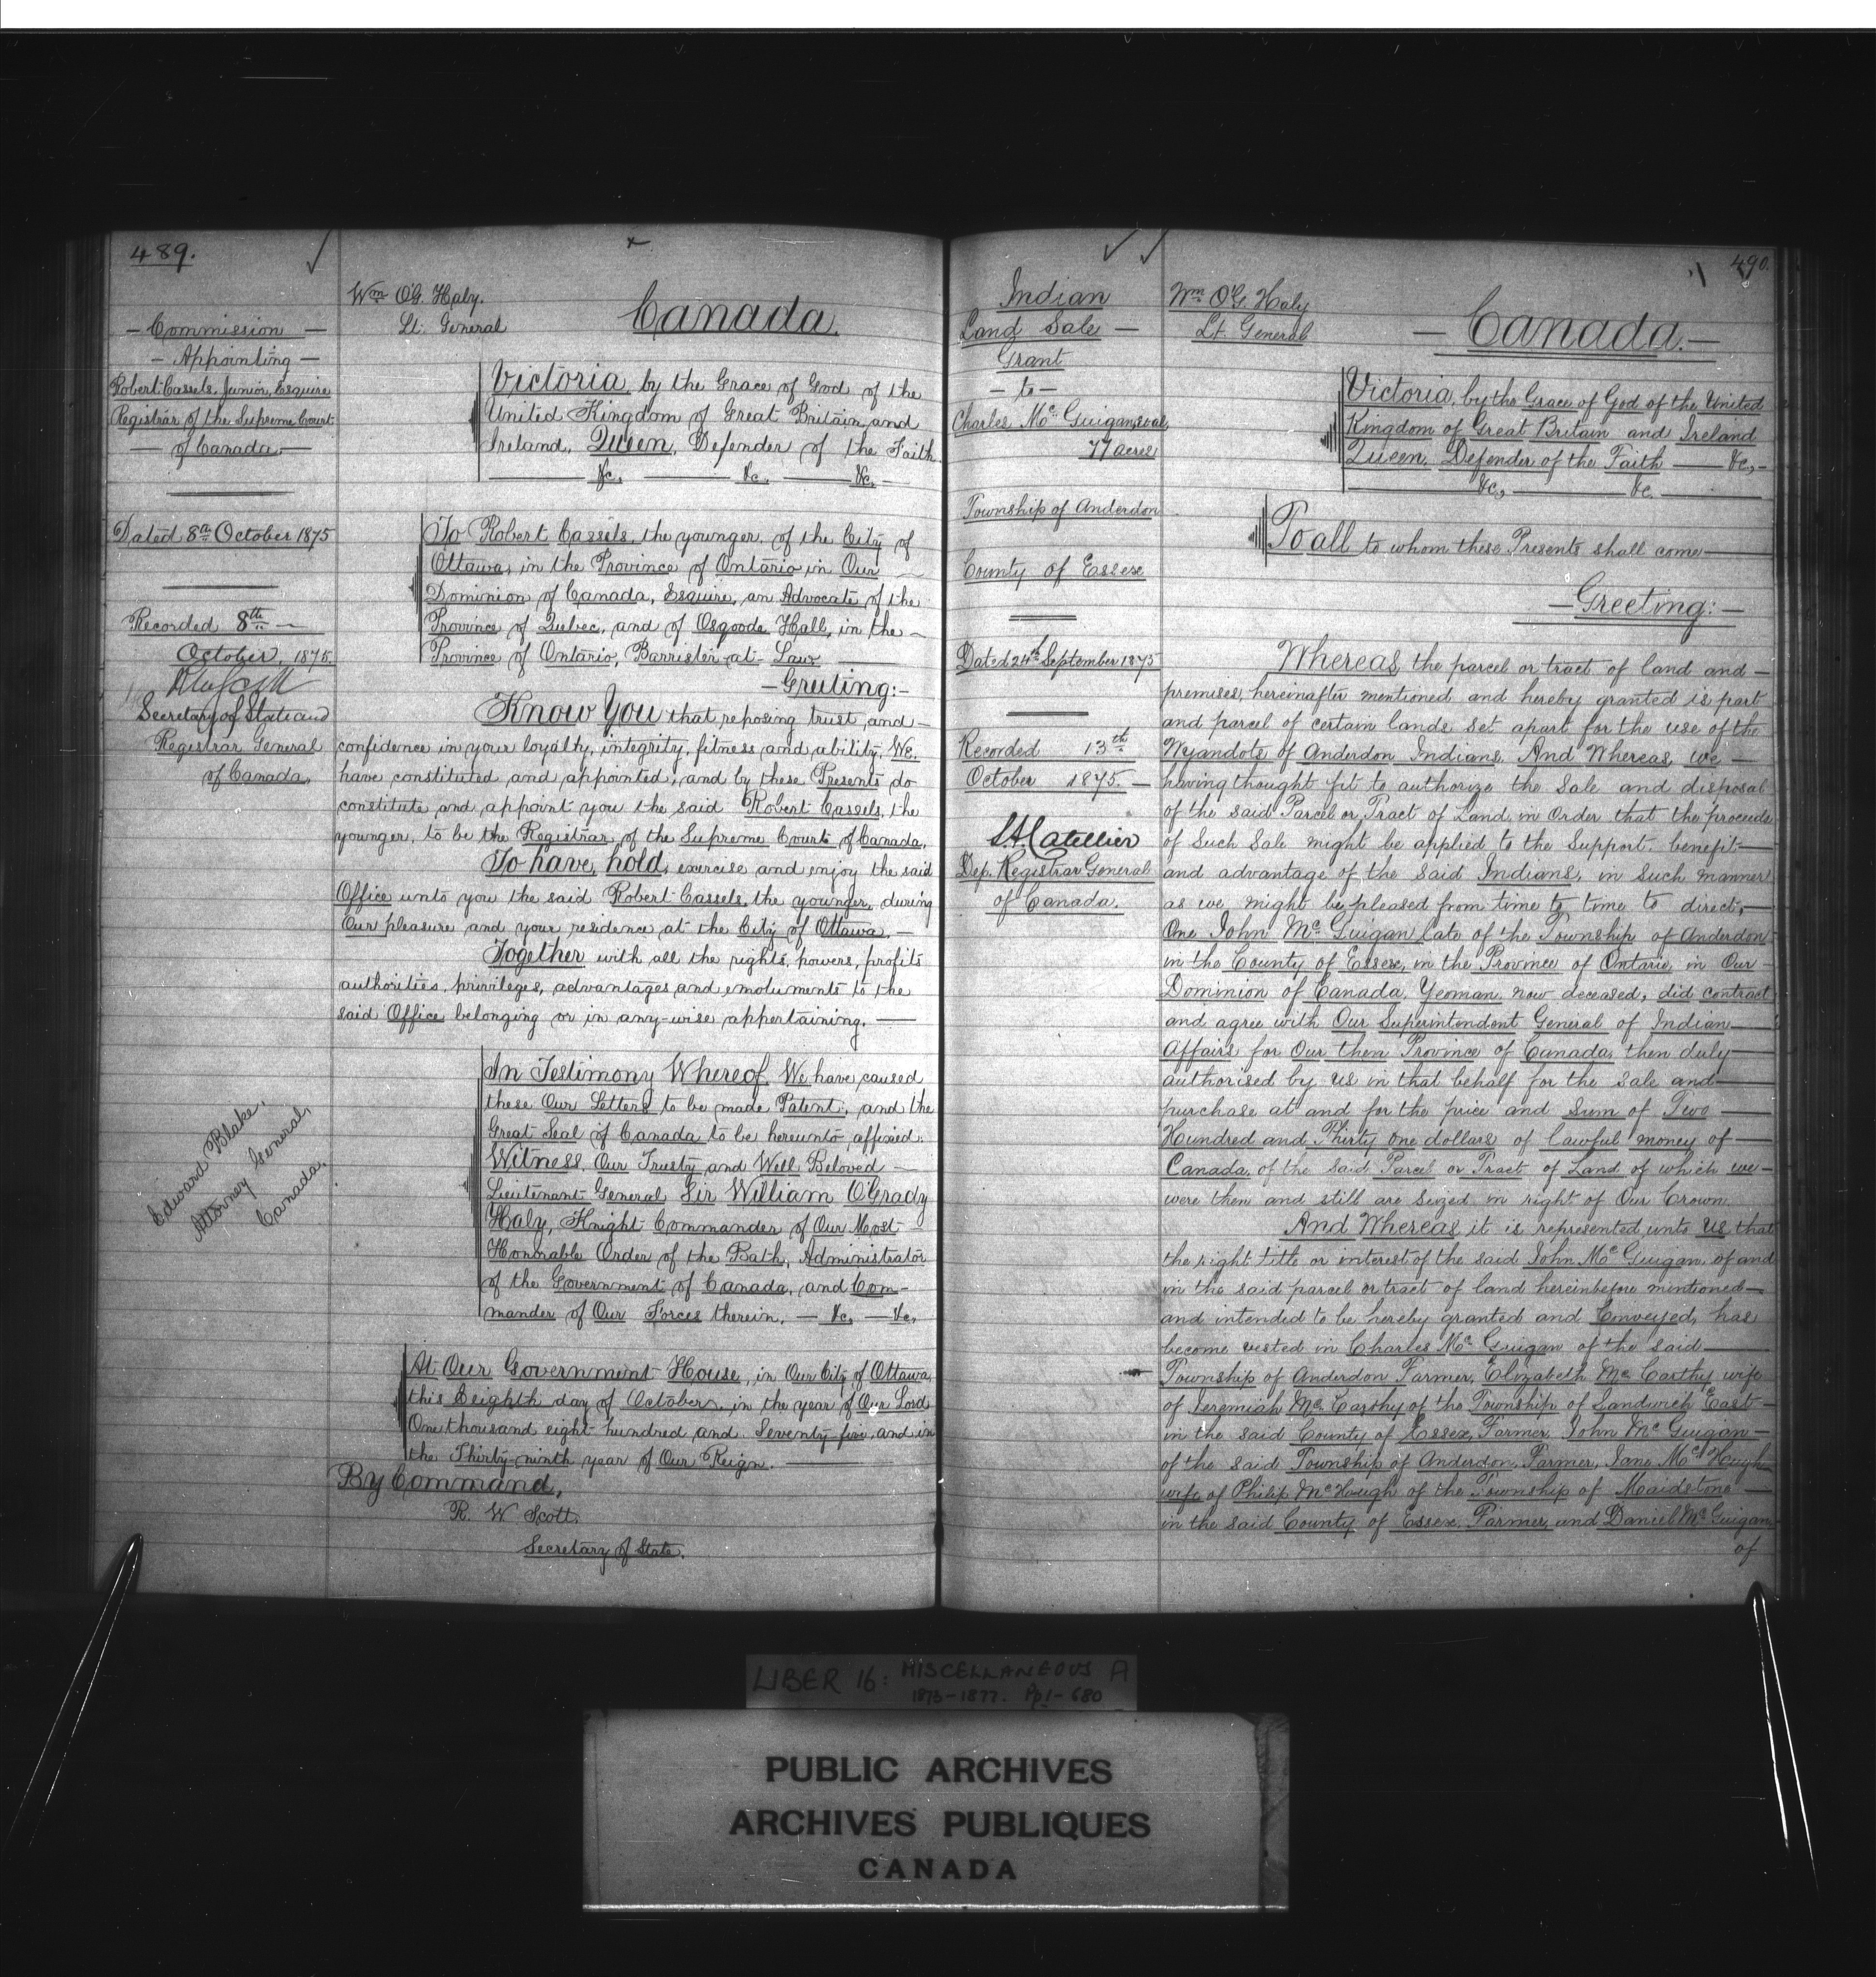 489.
— Commission —
— Appointing —
Robert Cassels, Junior, Esquire
Registrar of the Supreme Court
— of Canada. —
Dated 8th October 1875
Recorded 8th —
October, 1875.
Secretary of State and
Registrar General
of Canada.
Edward Blake.
Attorney General,
Canada.
Wm O'G. Haly.
Lt. General
Canada.
Victoria, by the Grace of God of the
United Kingdom of Great Britain and
Ireland, Queen, Defender of the Faith
— &c. — &c. — &c. —
To Robert Cassels, the younger, of the City of
Ottawa, in the Province of Ontario in Our
Dominion of Canada, Esquire, an Advocate of the
Province of Quebec, and of Osgoode Hall, in the —
Province of Ontario, Barrister-at-Law —
— Greeting:—
Know You that reposing trust and —
confidence in your loyalty, integrity, fitness and ability, We.
have constituted and appointed, and by these Presents do
constitute and appoint you the said Robert Cassels, the
younger, to be the Registrar of the Supreme Court of Canada.
To have, hold, exercise and enjoy the said
Office unto you the said Robert Cassels, the younger, during
Our pleasure and your residence at the City of Ottawa. —
Together with all the rights, powers, profits
authorities, privileges, advantages and emoluments to the
said Office belonging or in any-wise appertaining. —
In Testimony Whereof, We have caused
these Our Letters to be made Patent, and the
Great Seal of Canada to be hereunto affixed.
Witness, Our Trusty and Well Beloved —
Lieutenant General Sir William O'Grady
Haly, Knight Commander of Our Most
Honorable Order of the Bath, Administrator
of the Government of Canada, and Com-
mander of Our Forces therein. — &c. — &c.
At Our Government House, in Our City of Ottawa,
this Eighth day of October, in the year of Our Lord
One thousand eight hundred and Seventy-five, and in
the Thirty-ninth year of Our Reign. —
By Command,
R. W. Scott.
Secretary of State.
490.
Indian
Land Sale —
Grant
— to —
Charles Mc Guigan, et al,
77 acres
Township of Anderdon
County of Essex
Dated 24th September 1875
Recorded 13th
October 1875. —
L.A. Catellier
Dep. Registrar General
of Canada.
Wm O'G. Haly
Lt. General
— Canada. —
Victoria, by the Grace of God of the United
Kingdom of Great Britain and Ireland
Queen, Defender of the Faith — &c, —
— &c, — &c. —
To all to whom these Presents shall come —
— Greeting:—
Whereas, the parcel or tract of land and —
premises, hereinafter mentioned and hereby granted is part
and parcel of certain lands set apart for the use of the
Wyandots of Anderdon Indians. And Whereas, we —
having thought fit to authorize the Sale and disposal
of the said Parcel or Tract of Land, in Order that the proceeds
of Such Sale might be applied to the Support, benefit —
and advantage of the said Indians, in such manner
as we might be pleased from time to time to direct, —
One John Mc Guigan, late of the Township of Anderdon
in the County of Essex, in the Province of Ontario, in Our
Dominion of Canada, Yeoman, now deceased, did contract
and agree with Our Superintendent General of Indian —
Affairs for Our then Province of Canada, then duly —
authorised by us in that behalf for the sale and —
purchase at and for the price and sum of Two —
Hundred and Thirty one dollars of lawful money of —
Canada, of the said Parcel or Tract of Land of which we —
were then and still are seized in right of Our Crown.
And Whereas, it is represented unto us that
the right title or interest of the said John Mc Guigan, of and
in the said parcel or tract of land hereinbefore mentioned —
and intended to be hereby granted and Conveyed, has
become vested in Charles Mc Guigan of the said —
Township of Anderdon Farmer, Elizabeth Mc Carthy wife
of Jeremiah Mc Carthy of the Township of Sandwich East —
in the said County of Essex, Farmer, John Mc Guigan —
of the said Township of Anderdon, Farmer, Jane Mc Hugh
wife of Philip Mc Hough of the Township of Maidstone —
in the said County of Essex. Farmer, and Daniel Mc Guigan
of
LIBER 16: MISCELLANEOUS A
1873-1877. Pp 1-680
PUBLIC ARCHIVES
ARCHIVES PUBLIQUES
CANADA